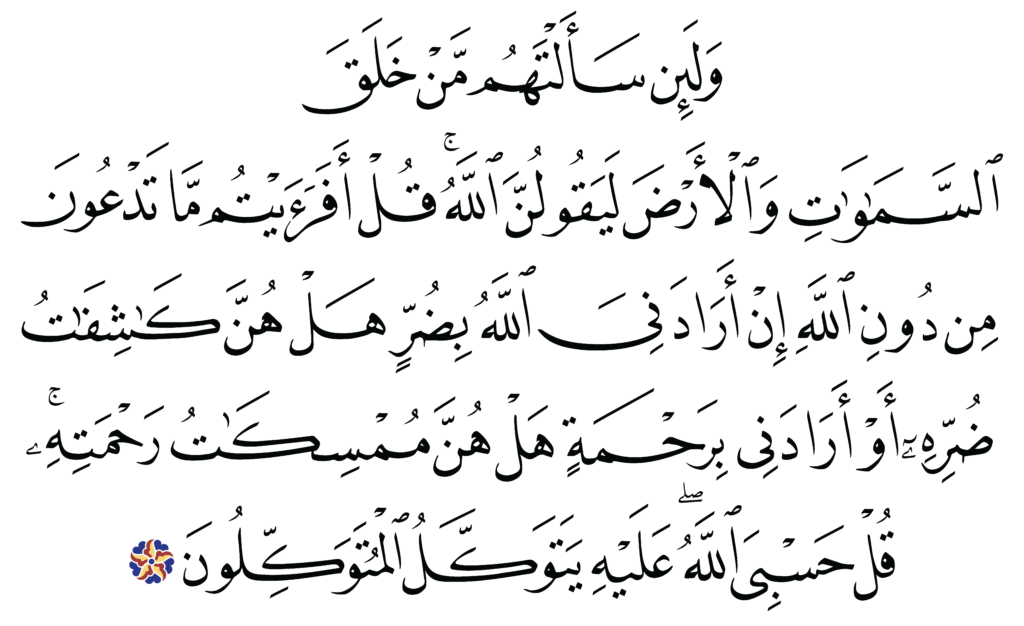 وَلَئِن سَأَلْتَهُم مَّنْ خَلَقَ
ٱلسَّمَٰوَٰتِ وَٱلْأَرْضَ لَيَقُولُنَّ ٱللَّهُ ۚ قُلْ أَفَرَءَيْتُم مَّا تَدْعُونَ
مِن دُونِ ٱللَّهِ إِنْ أَرَادَنِىَ ٱللَّهُ بِضُرٍّ هَلْ هُنَّ كَٰشِفَٰتُ
ضُرِّهِۦٓ أَوْ أَرَادَنِى بِرَحْمَةٍ هَلْ هُنَّ مُمْسِكَٰتُ رَحْمَتِهِۦ ۚ
قُلْ حَسْبِىَ ٱللَّهُ ۖ عَلَيْهِ يَتَوَكَّلُ ٱلْمُتَوَكِّلُونَ